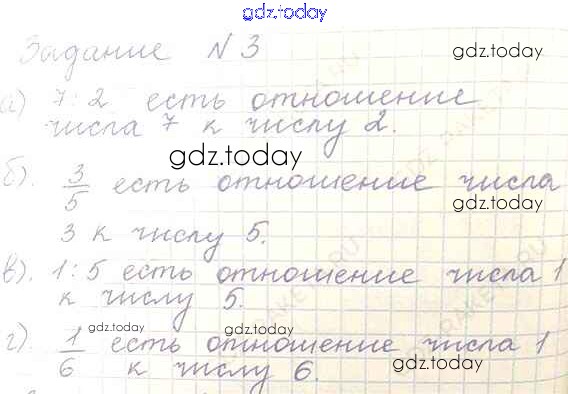 gdz.today
Задание N 3
gdz.today
а) 7:2 есть отношение
числа 7 к числу 2.
gdz.today
б). 3/5 есть отношение числа
gdz.today
3 к числу 5.
в). 1:5 есть отношение числа 1
к числу 5.
gdz.today gdz.today
г). 1/6 есть отношение числа 1
к числу 6.
gdz.today